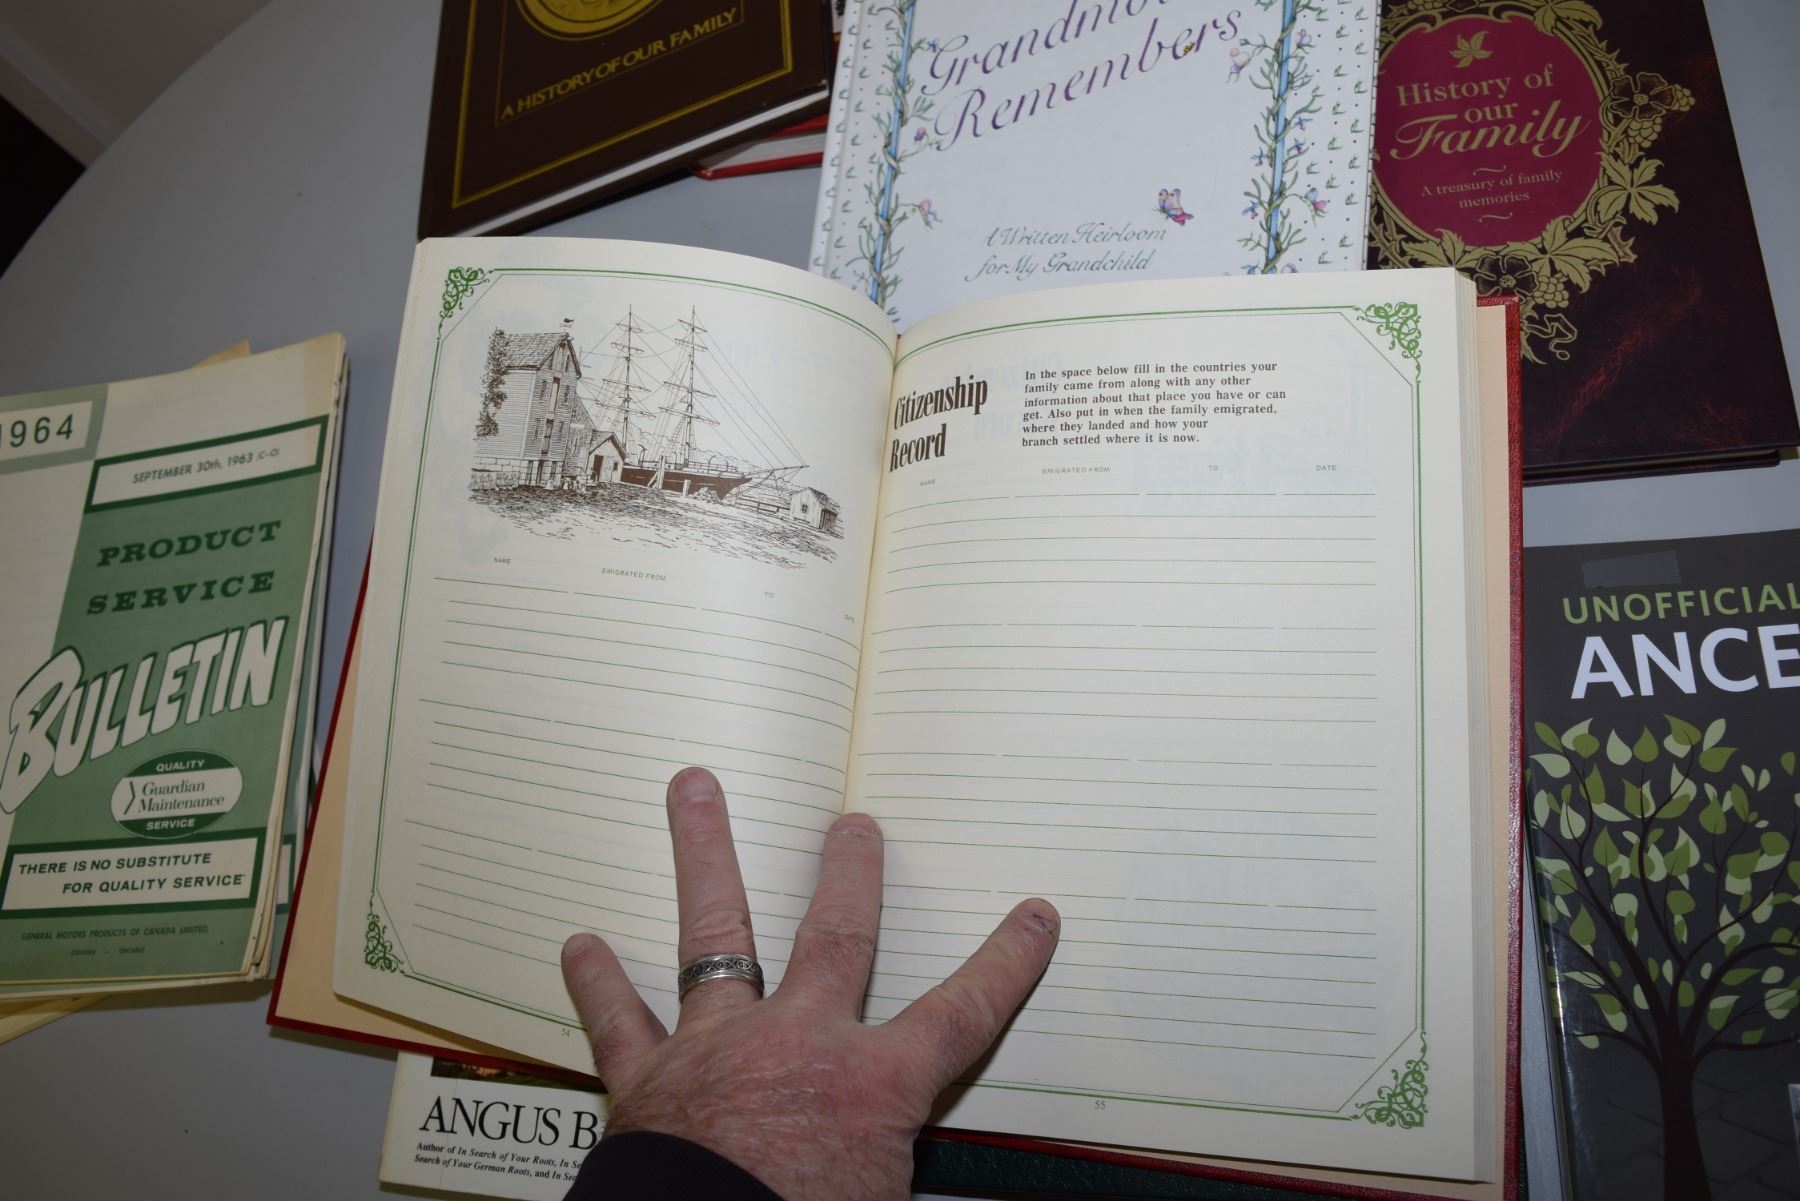 A HISTORY OF OUR FAMILY
Remembers
A Written Heirloom
for My Grandchild
History of
our
Family
A treasury of family
memories
1964
SEPTEMBER 30th, 1963 (C-O)
PRODUCT
SERVICE
BULLETIN
QUALITY
Guardian
Maintenance
SERVICE
THERE IS NO SUBSTITUTE
FOR QUALITY SERVICE
GENERAL MOTORS PRODUCTS OF CANADA LIMITED,
OSHAWA - ONTARIO
NAME EMIGRATED FROM TO DATE
54
Citizenship
Record
In the space below fill in the countries your
family came from along with any other
information about that place you have or can
get. Also put in when the family emigrated,
where they landed and how your
branch settled where it is now.
NAME EMIGRATED FROM TO DATE
55
UNOFFICIAL
ANCE
ANGUS B
Author of In Search of Your Roots, In Se
Search of Your German Roots, and In Sea